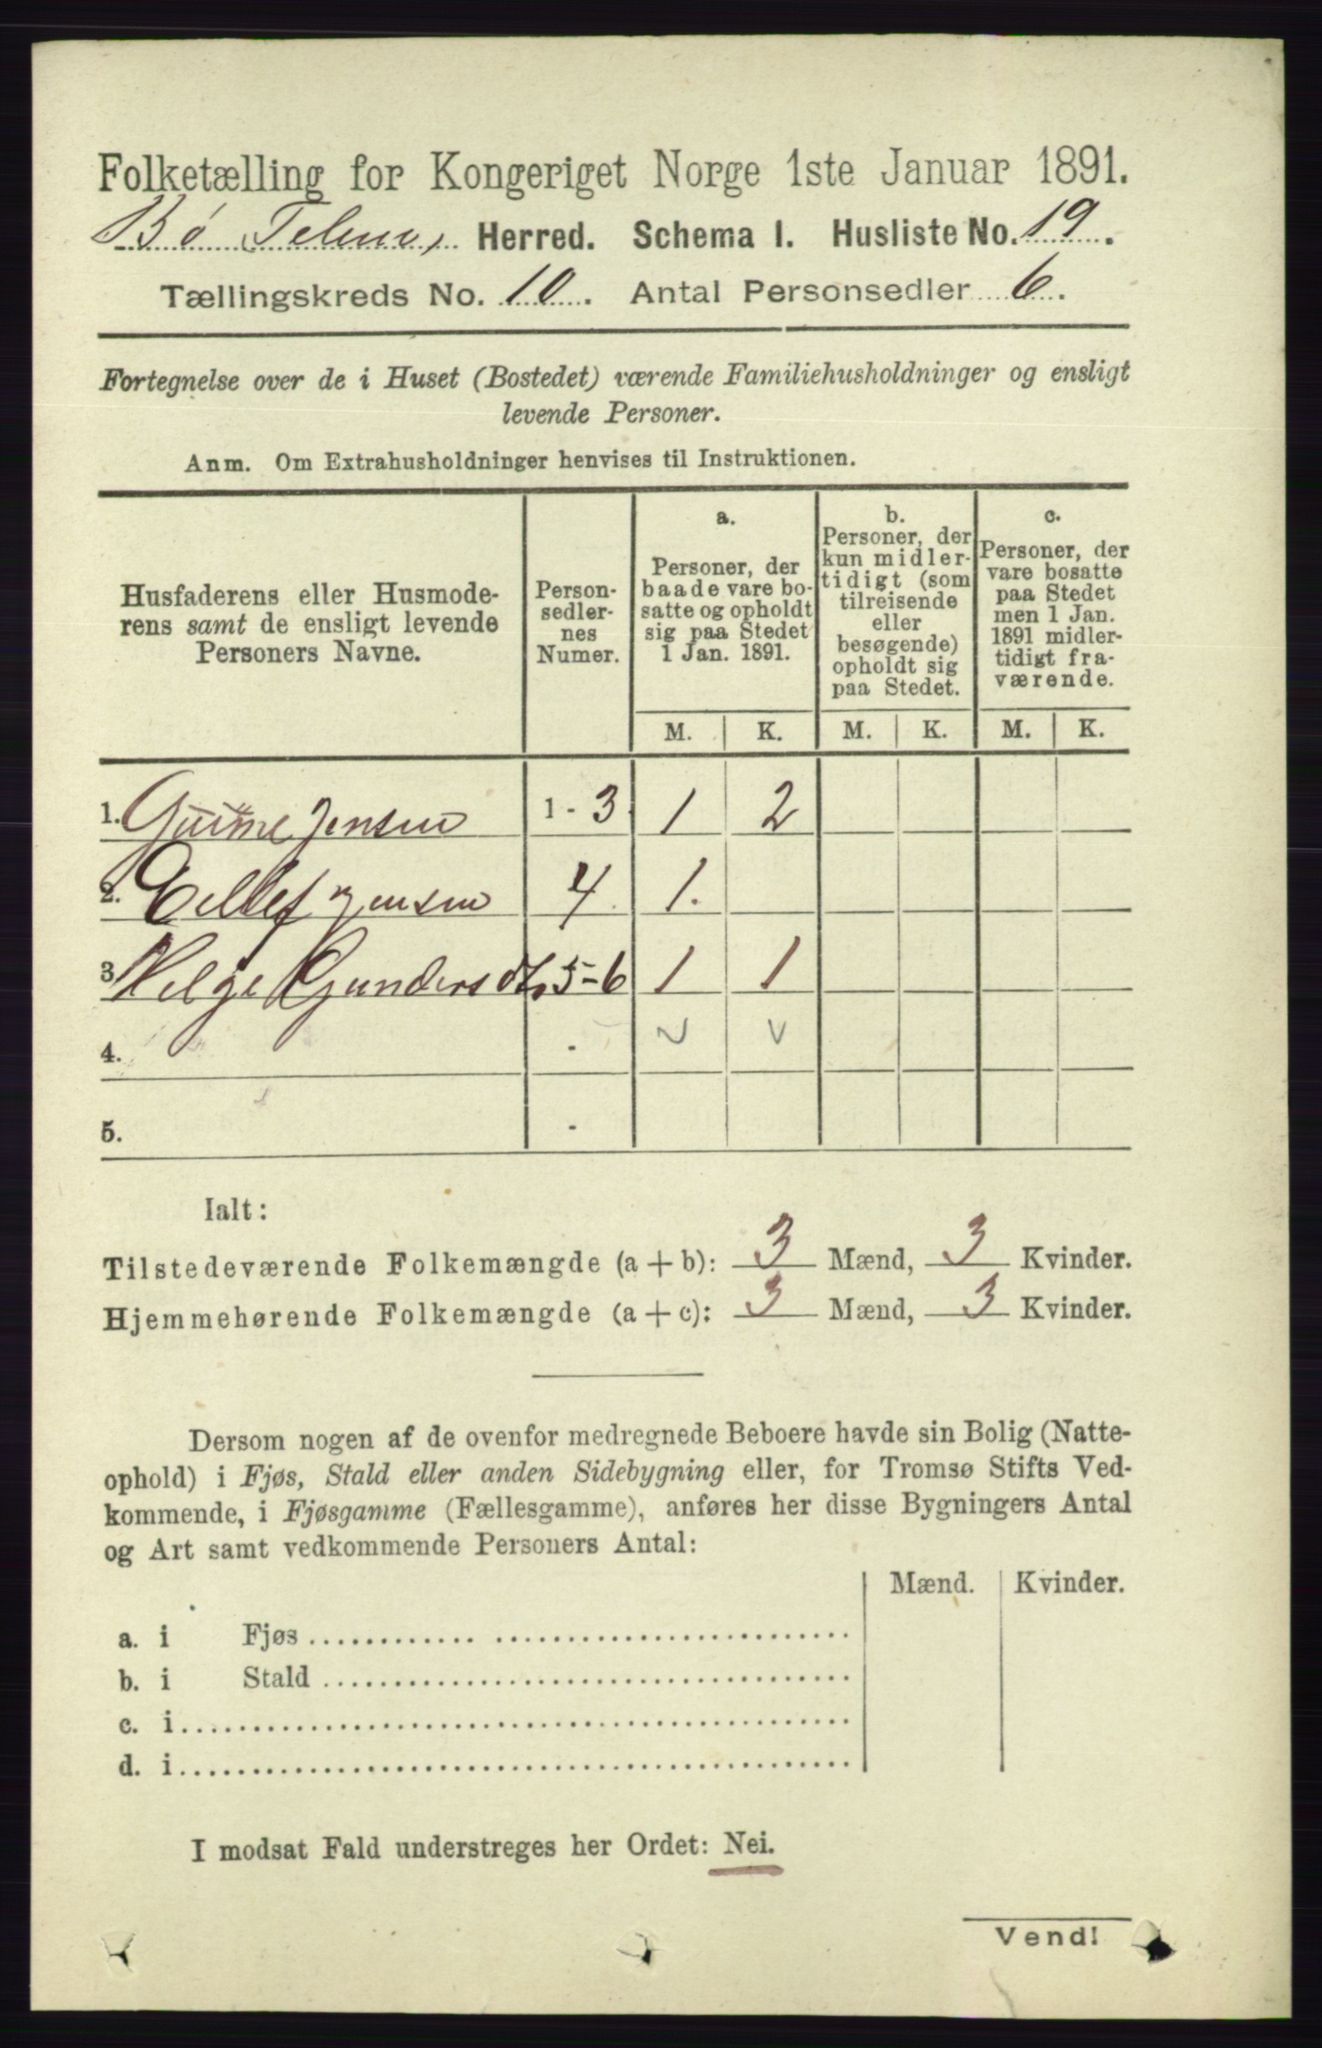 Folketælling for Kongeriget Norge 1ste Januar 1891.
Bø Herred. Schema I. Husliste No. 19.
Tællingskreds No. 10. Antal Personsedler 6.
Fortegnelse over de i Huset (Bostedet) værende Familiehusholdninger og ensligt
levende Personer.
Anm. Om Extrahusholdninger henvises til Instruktionen.
Husfaderens eller Husmode-
rens samt de ensligt levende
Personers Navne.
Person-
sedler-
nes
Numer.
a.
Personer, der
baade vare bo-
satte og opholdt
sig paa Stedet
1 Jan. 1891.
b.
Personer, der
kun midler-
tidigt (som
tilreisende
eller
besøgende)
opholdt sig
paa Stedet.
c.
Personer, der
vare bosatte
paa Stedet
men 1 Jan.
1891 midler-
tidigt fra-
værende.
M. K. M. K. M. K.
1. Jensen 1 - 3 1 2
2. Ellef Jensen 4. 1.
3 Helge Gundersdt. 5-6 1 1
4. - v v
5. -
Ialt:
Tilstedeværende Folkemængde (a + b): 3 Mænd, 3 Kvinder.
Hjemmehørende Folkemængde (a + c): 3 Mænd, 3 Kvinder.
Dersom nogen af de ovenfor medregnede Beboere havde sin Bolig (Natte-
ophold) i Fjøs, Stald eller anden Sidebygning eller, for Tromsø Stifts Ved-
kommende, i Fjøsgamme (Fællesgamme), anføres her disse Bygningers Antal
og Art samt vedkommende Personers Antal:
Mænd. Kvinder.
a. i Fjøs
b. i Stald
c. i
d. i
I modsat Fald understreges her Ordet: Nei.
Vend!